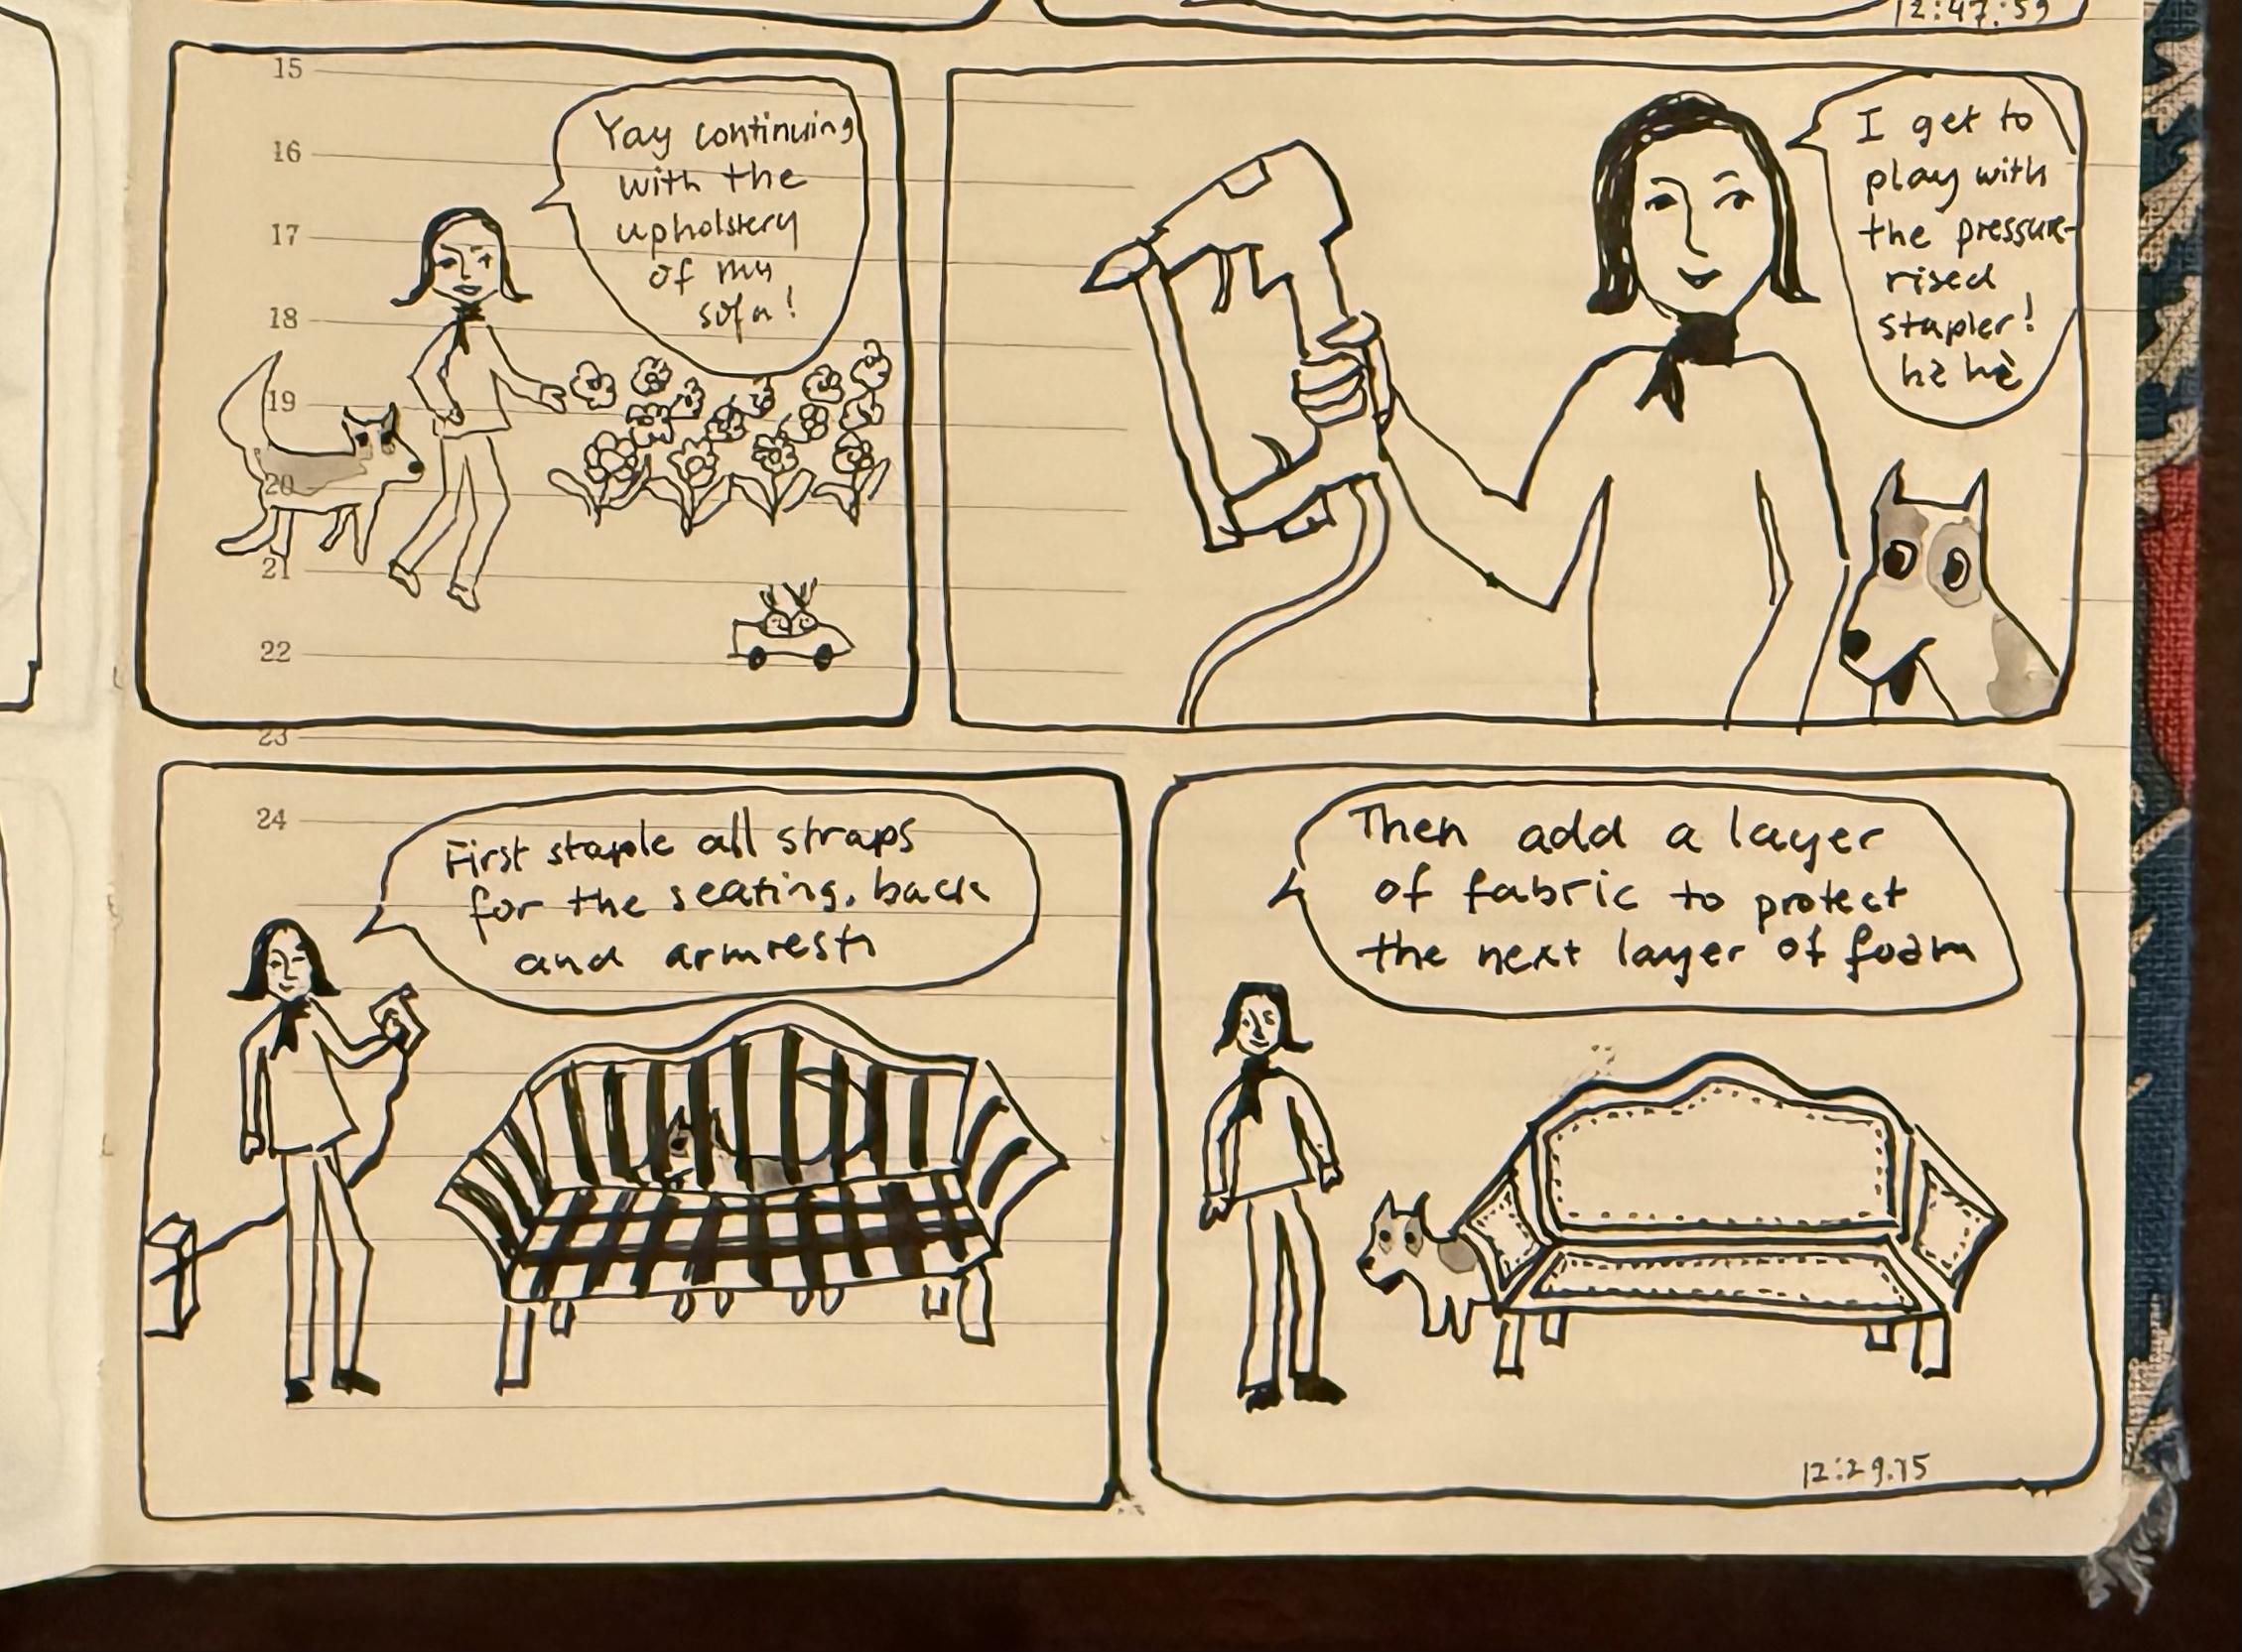 12:47:59
15
16
17
18
19
20
21
22
23
24
Yay continuing
with the
upholstery
of my
sofa!
I get to
play with
the pressure-
rised
stapler!
hè hè
First staple all straps
for the seating, back
and armrests
Then add a layer
of fabric to protect
the next layer of foam
12:29.15